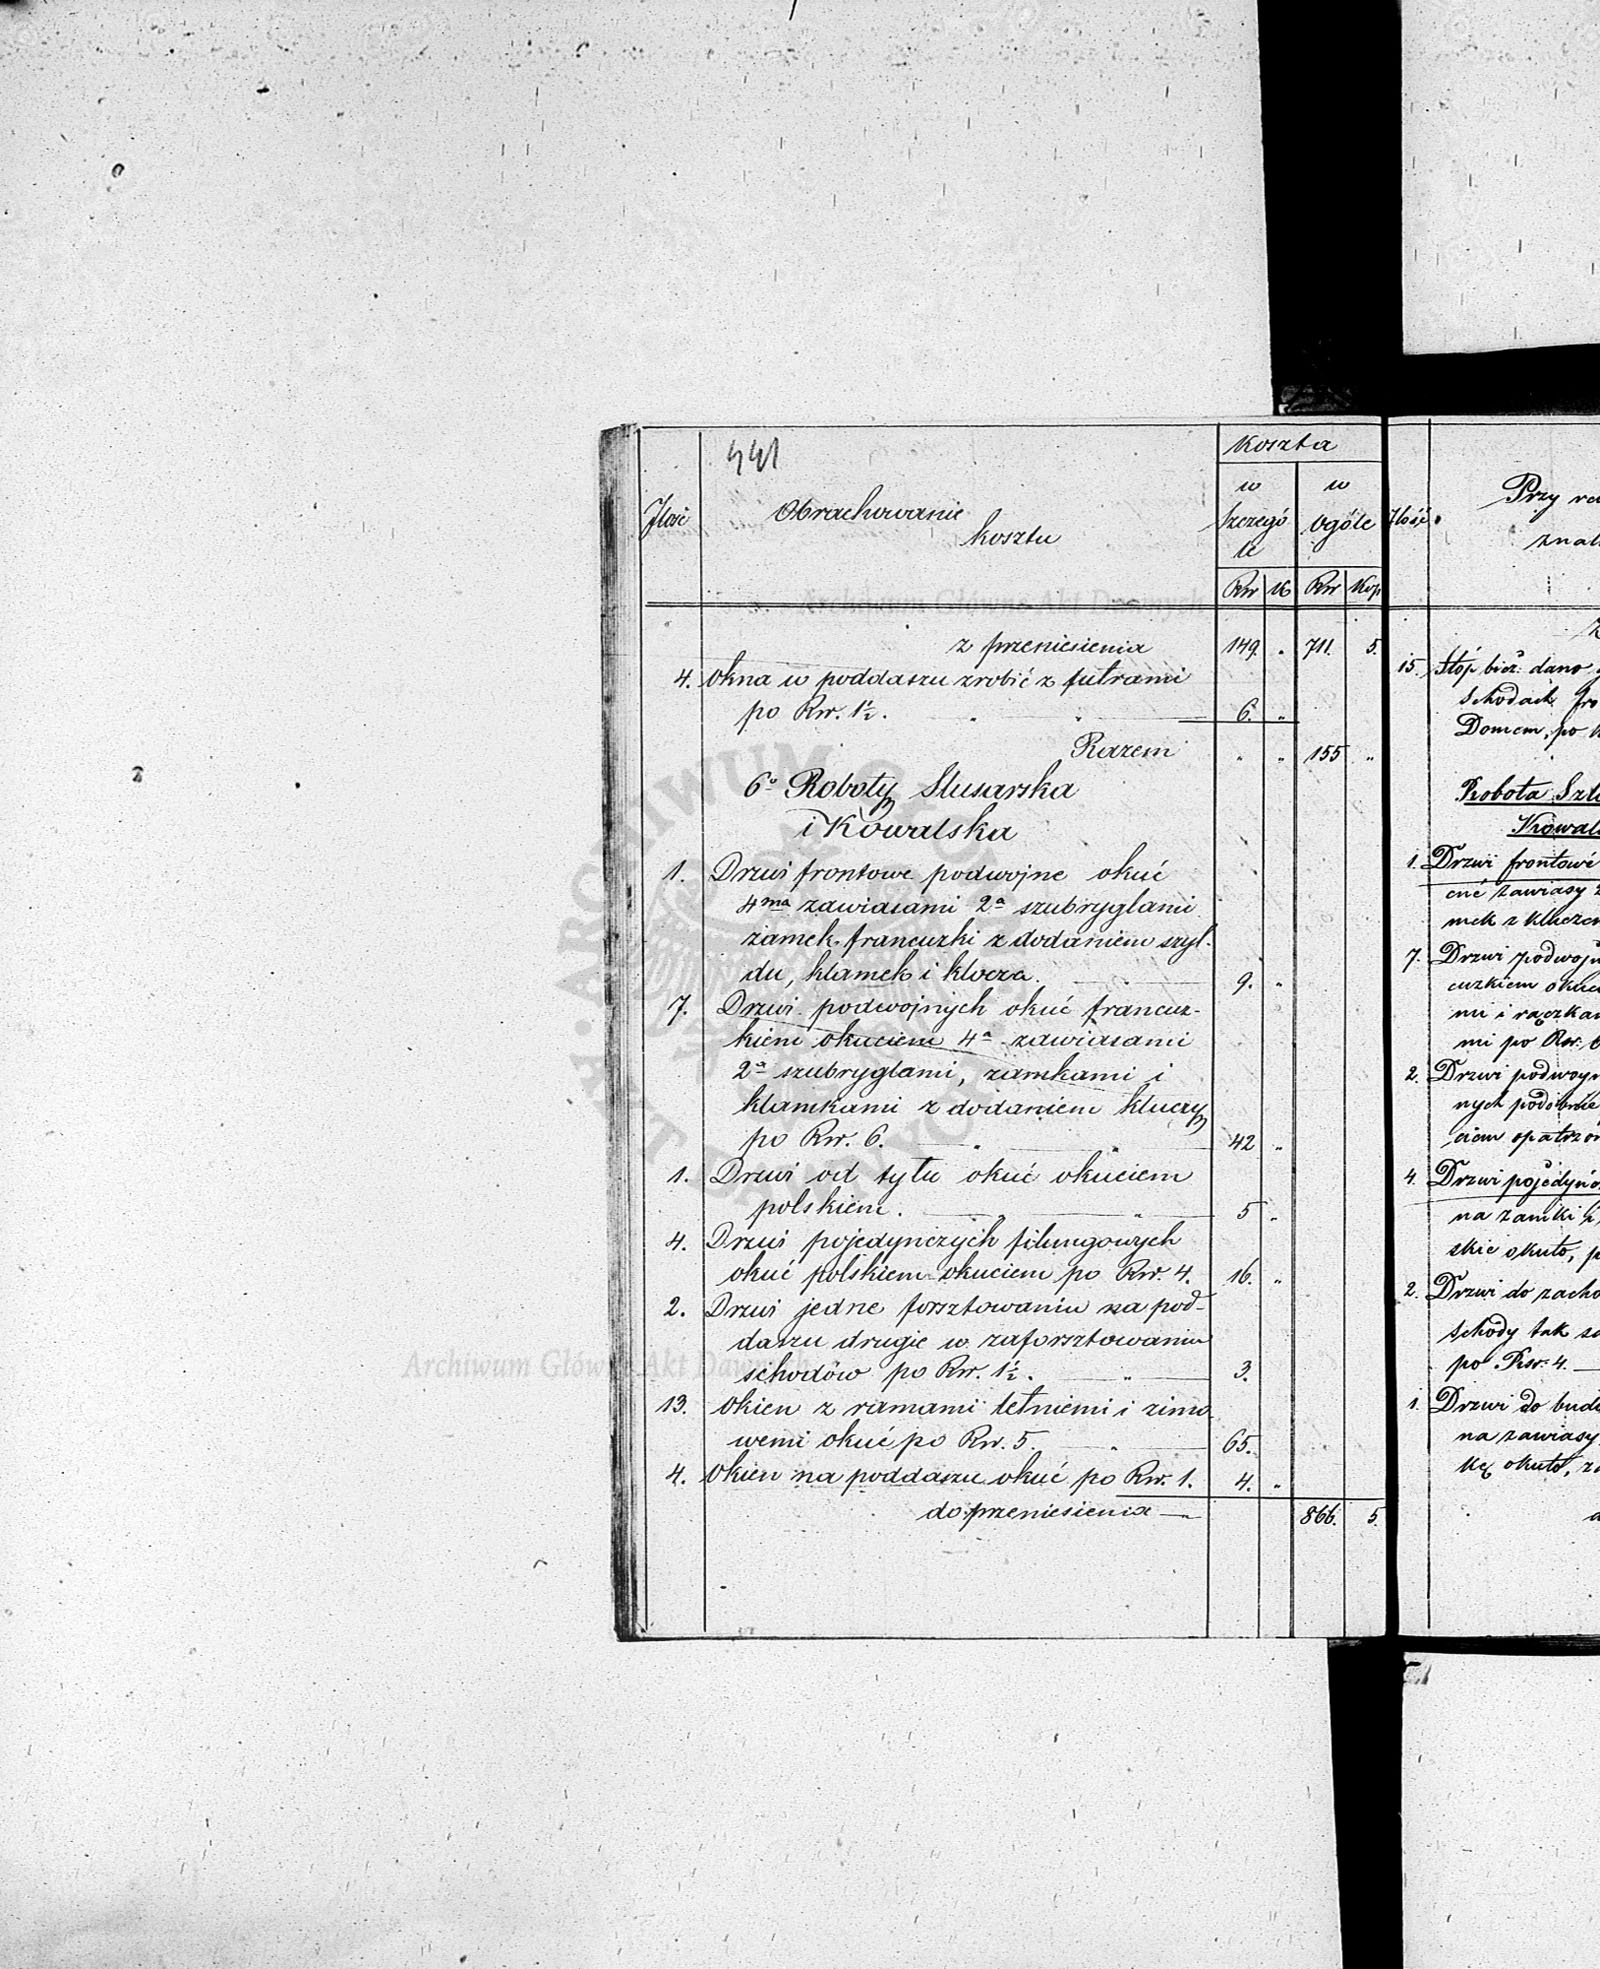 441
Jlość
Obrachowanie
kosztu
Koszta
w
szczegó
le
w
ogóle
Rsr K Rsr Kop
z przeniesienia 149. " 711. 5.
4. Okna w poddaszu zrobić z futrami
po Rsr. 1½. " " 6. "
Razem " " 155 "
6o Roboty Slusarska
i Kowalska
1. Drzwi frontowe podwojne okuć
4ma zawiasami 2a szubryglami
zamek francuzki z dodaniem szyl-
du, klamek i klucza. 9. "
7. Drzwi podwojnych okuć francuz-
kiem okuciem 4a zawiasami
2a szubryglami, zamkami i
klamkami z dodaniem kluczy
po Rsr. 6. " " 42 "
1. Drzwi od tyłu okuć okuciem
polskiem. " " 5 "
4. Drzwi pojedynczych filungowych
okuć polskiem okuciem po Rsr. 4. 16. "
2. Drzwi jedne forsztowaniu na pod-
daszu drugie w zaforsztowaniu
schodów po Rsr. 1½. " 3.
13. Okien z ramami letniemi i zimo-
wemi okuć po Rsr. 5. " 65.
4. Okien na poddaszu okuć po Rsr. 1. 4. "
do przeniesienia 866. 5.
Ilość
Przy
15. Stóp bież: dano
schodach
Domem, po
Robota
1. Drzwi frontowe
zawiasy
mek z kluczem
7. Drzwi
cuzkiem
mi i rączka
mi po Rsr.
2. Drzwi
nych podobnie
ciem
4. Drzwi
na zamki
skie okuto,
2. Drzwi do
schody tak
po Rsr. 4.
1. Drzwi do
na zawiasy
kę okuto,
Archiwum Główne Akt Dawnych
Archiwum Główne Akt Dawnych